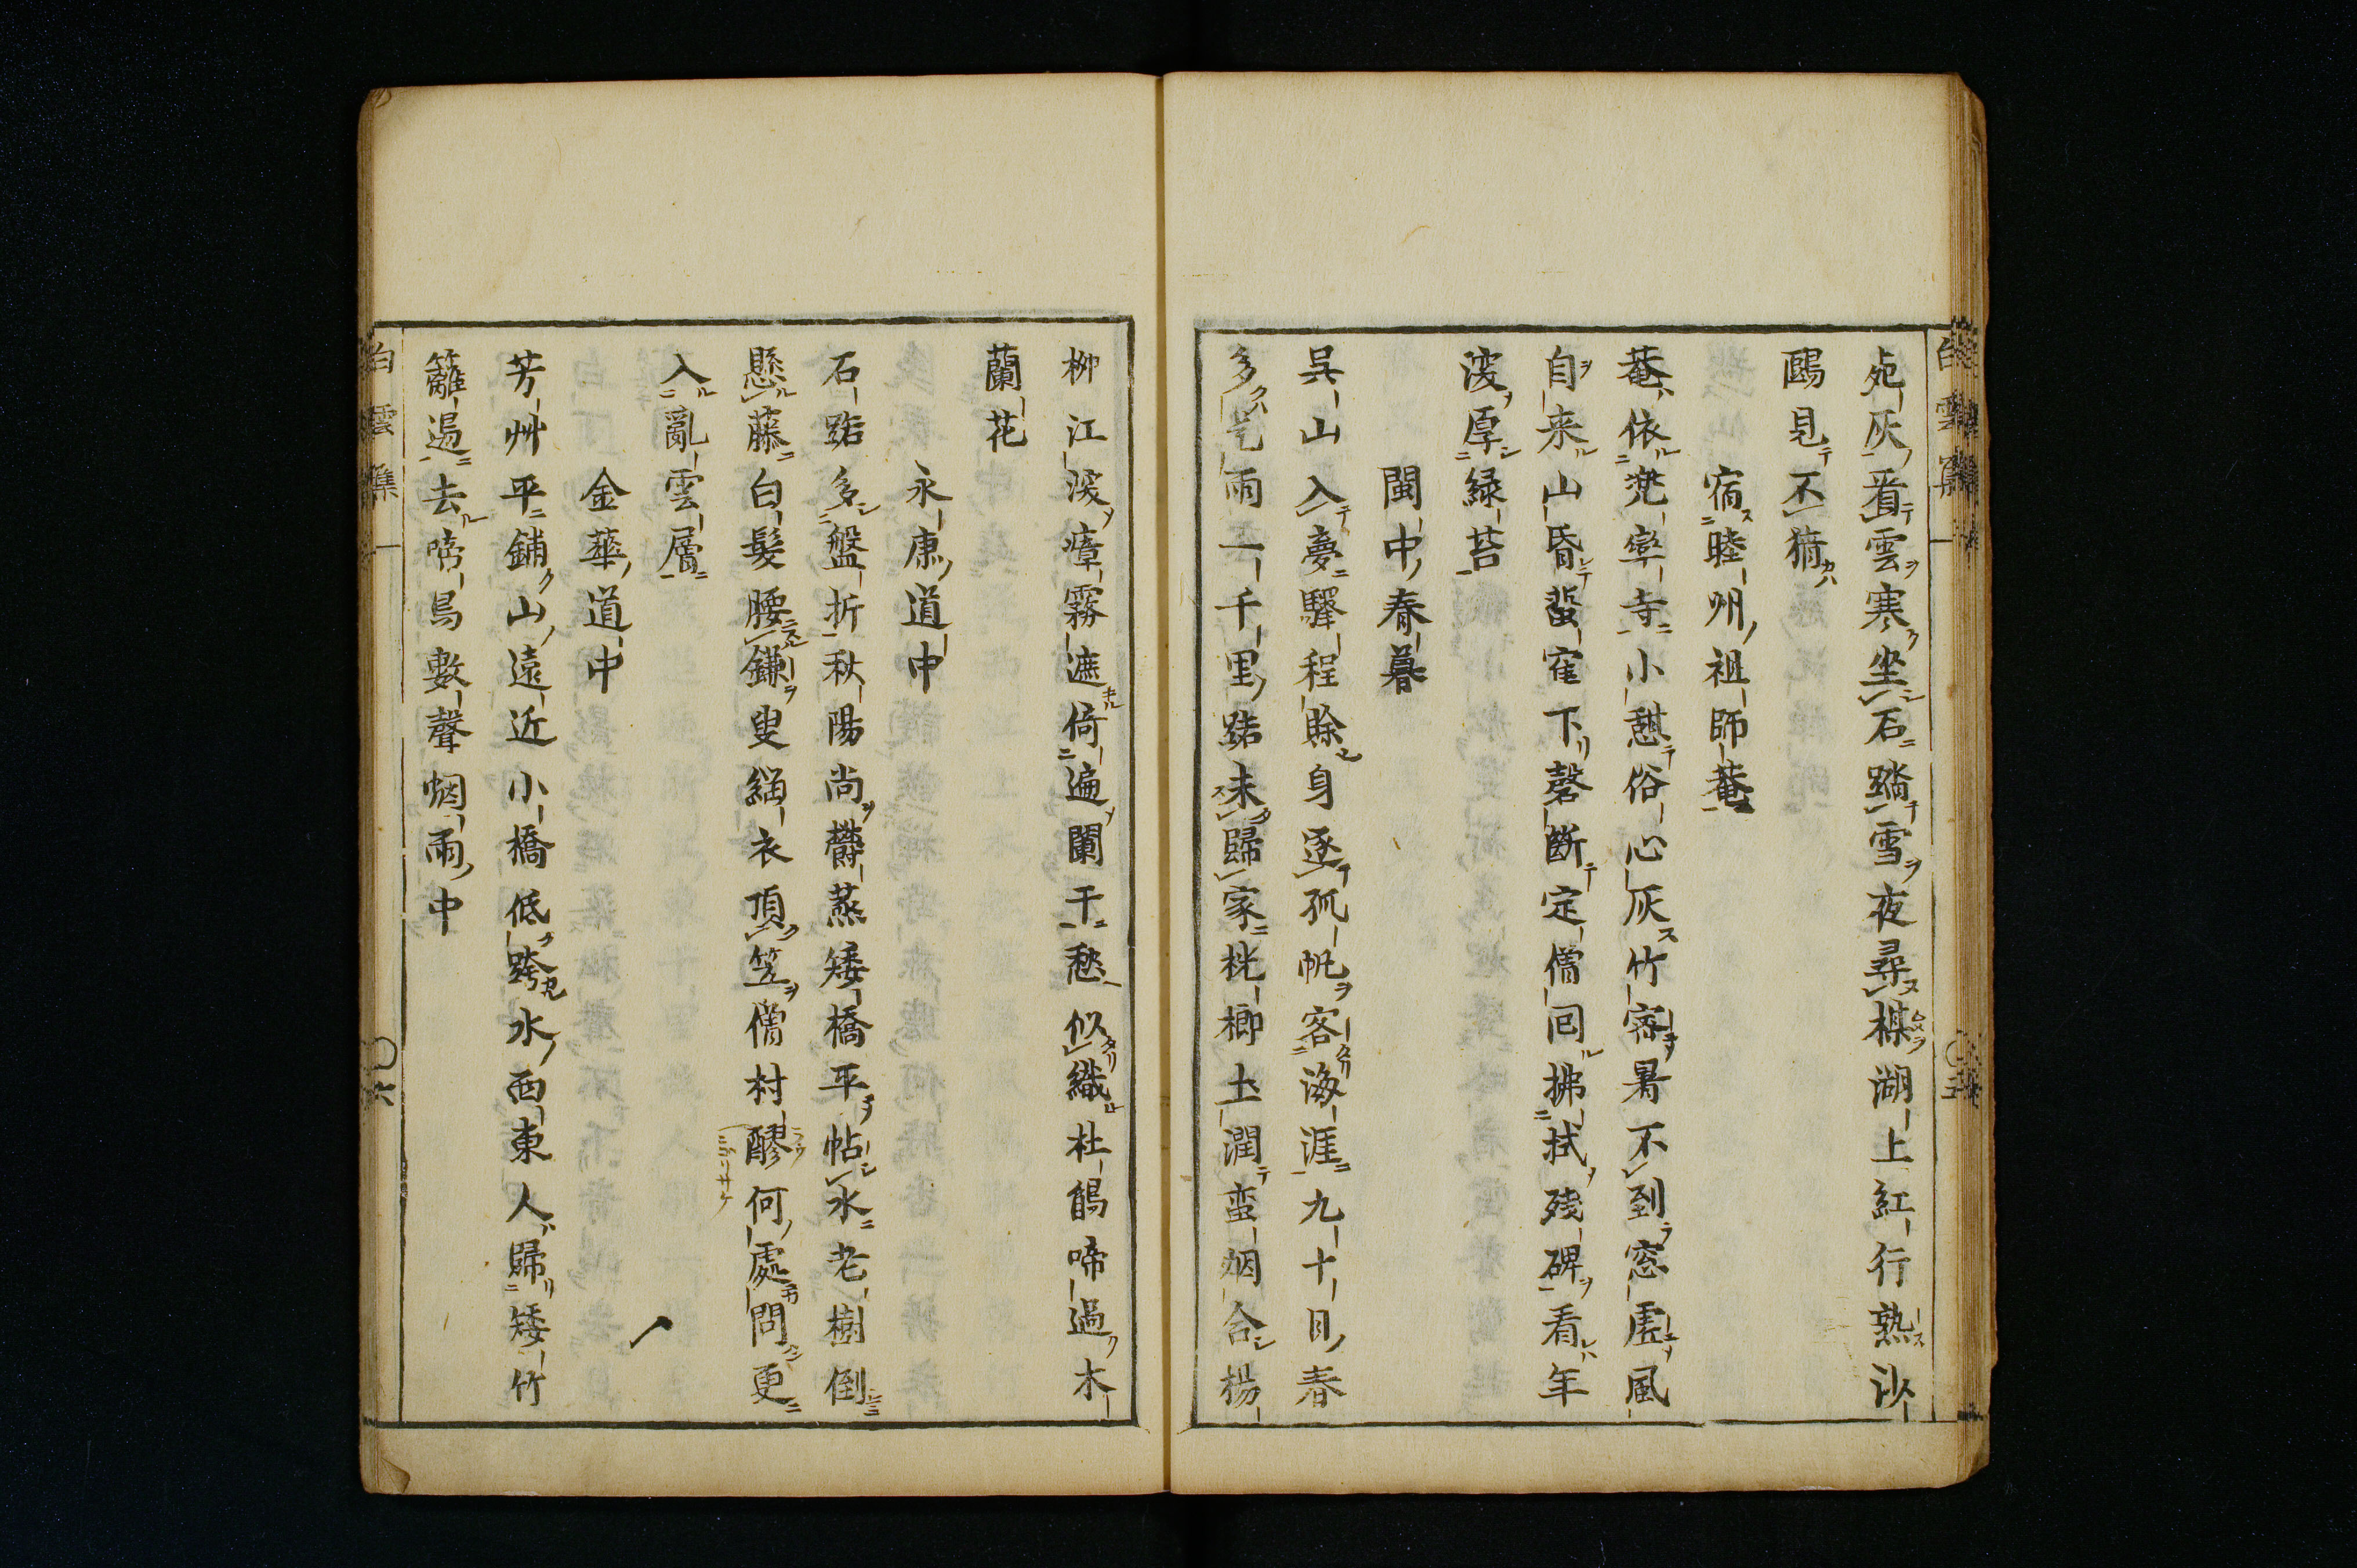 死灰看雲寒坐石踏雪夜尋棋湖上紅行熟沙
鷗見不猜
宿睦州祖師菴
菴依兜率寺小憇俗心灰竹密暑不到窓虚風
自来山昏蛩寉下磬断定僧回拂拭残碑看年
深厚緑苔
閩中春暮
呉山入夢驛程賖身逐孤帆客海涯九十日春
多是雨一千里路未歸家桄榔土潤蛮烟合楊
柳江深瘴霧遮倚遍闌干愁似織杜鵑啼過木
蘭花
永康道中
石路多盤折秋陽尚欝蒸矮橋平帖水老樹倒
懸藤白髪腰鎌叟緇衣頂笠僧村醪何處問更
入亂雲層
金華道中
芳艸平鋪山遠近小橋低跨水西東人歸矮竹
籬邊去啼鳥數聲烟雨中
白雲集 一 〇六